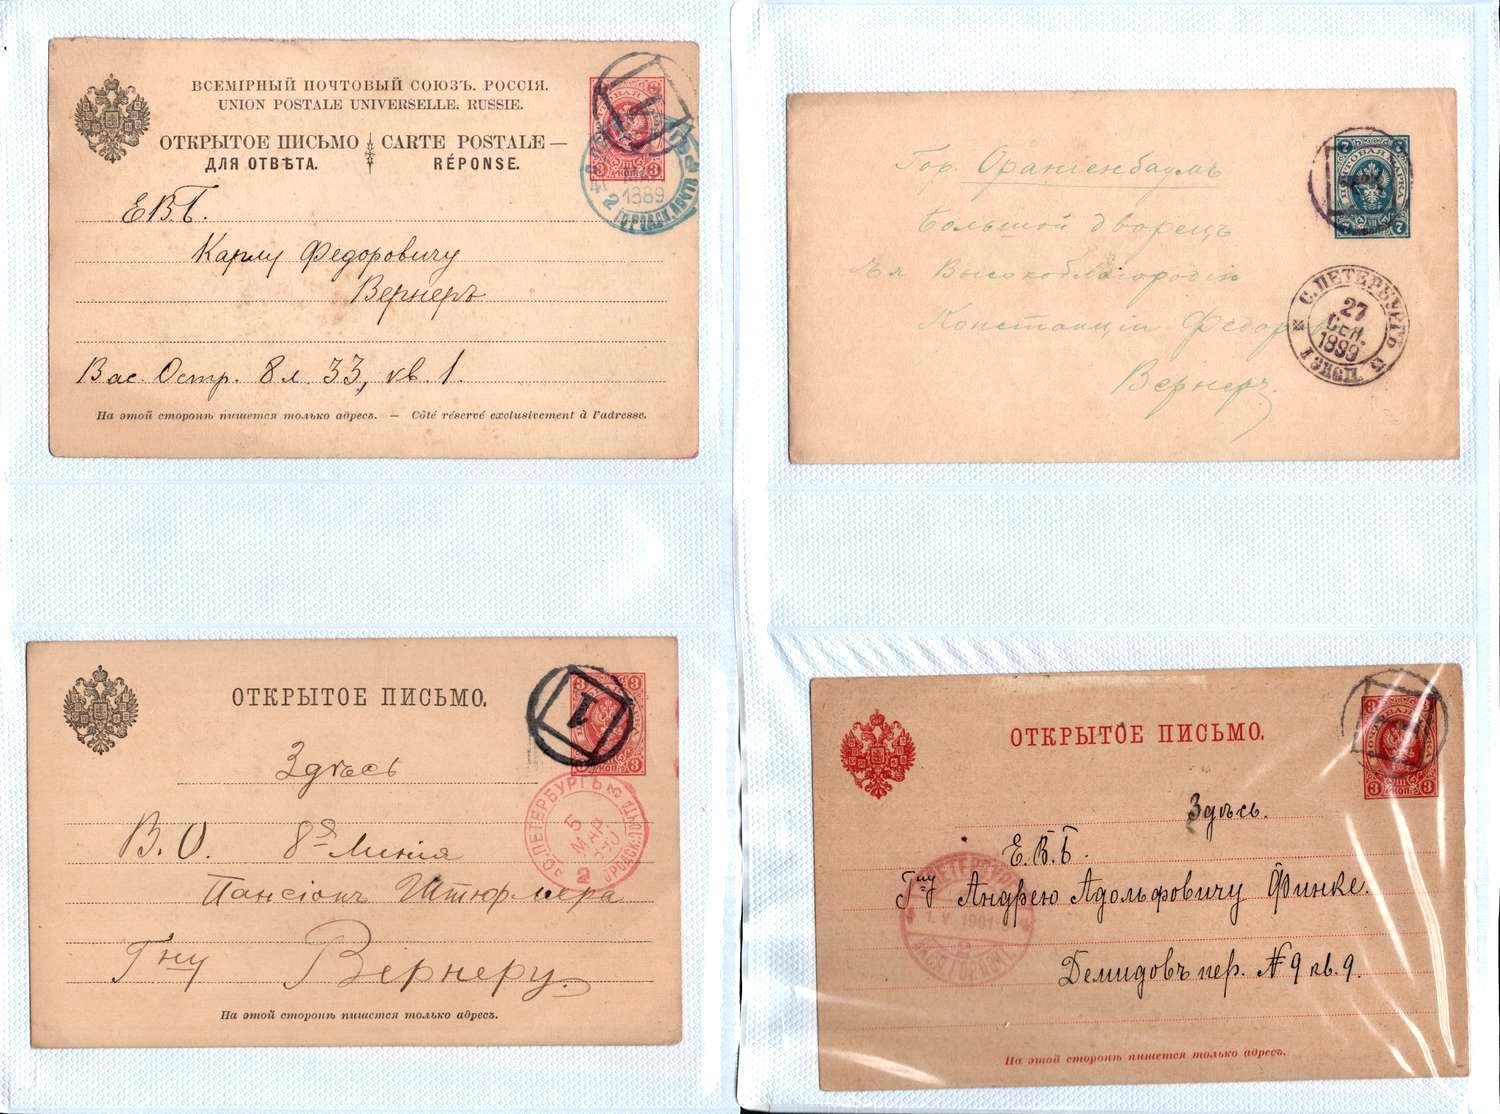 ВСЕМІРНЫЙ ПОЧТОВЫЙ СОЮЗЪ. РОССІЯ.
UNION POSTALE UNIVERSELLE. RUSSIE.
ОТКРЫТОЕ ПИСЬМО CARTE POSTALE
ДЛЯ ОТВѢТА. RÉPONSE.
3 3
КОП.
1889
2
ГОРОДСК. ПОЧТА
ЕВБ.
Карлу Федоровичу
Вернеръ
Вас. Остр. 8 л. 33, кв. 1.
На этой сторонѣ пишется только адресъ. — Côté réservé exclusivement à l'adresse.
7 7
ПОЧТОВАЯ МАРКА
7 7
Гор. Ораніенбаумъ
Большой дворецъ
Высокоблагородію
Вернеръ.
С. ПЕТЕРБУРГЪ
27
СЕН.
1899
1 ЭКСП.
ОТКРЫТОЕ ПИСЬМО.
3 3
1
3 КОП. 3
Здѣсь
В. О. 8я Линія
Пансіонъ Штюрмера
Гну Вернеру.
С. ПЕТЕРБУРГЪ
5
МАР
2
На этой сторонѣ пишется только адресъ.
ОТКРЫТОЕ ПИСЬМО.
3 КОП. 3
Здѣсь.
Е. В. Б.
Гну Андрею Адольфовичу Финке.
Демидовъ пер. № 9 кв. 9.
ПЕТЕРБУРГ
1. V. 1901
2
На этой сторонѣ пишется только адресъ.